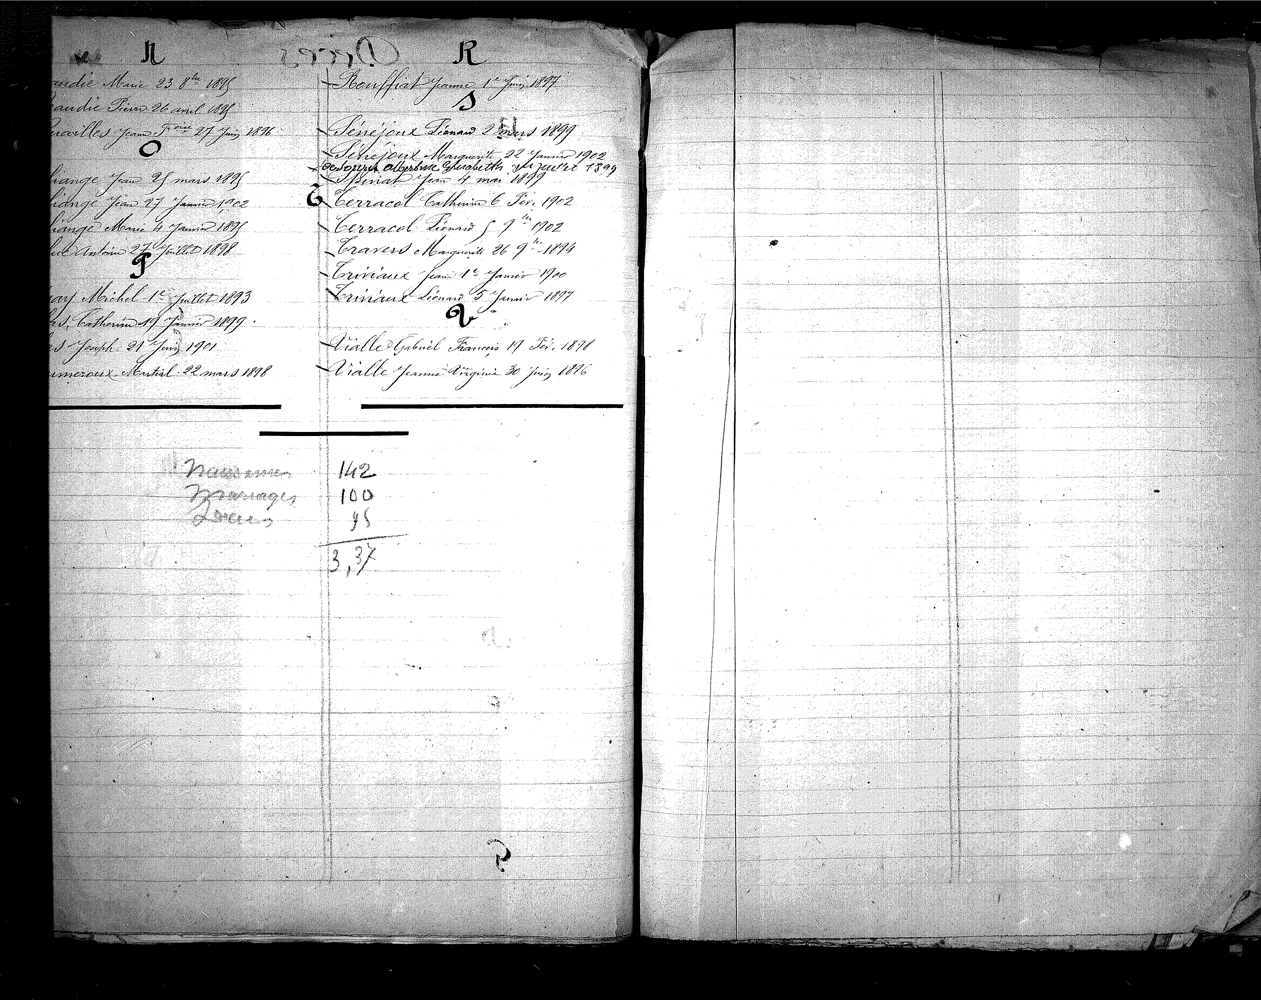 N
Marie 23 8bre 1895
Pierre 26 avril 1895
Jeanne 27 Juin 1896
O
Jean 25 mars 1895
Jean 27 Janvier 1902
Marie 4 Janvier 1895
Antoine 27 Juillet 1898
P
Michel 1er Juillet 1893
Catherine 19 Janvier 1899.
Joseph. 21 Juin 1901
Martial. 22 mars 1898
Décès
R
Rouffiat Jeanne 1er Juin 1897
S
Sénéjoux Léonard 2 mars 1899
Sénéjoux Marguerite 22 Janvier 1902
Elisabeth
Spinat Jean 4 mai 1899
T
Terracol Catherine 6 Fév. 1902
Terracol Léonard 5 9bre 1902
Travers Marguerite 26 9bre 1894
Triviaux Jean 1er Janvier 1900
Triviaux Léonard 5 Janvier 1897
V
Vialle Gabriel François 19 Fév. 1898
Vialle Jeanne Virginie 30 Juin 1896
Naissances 142
Mariages 100
Décès 95
3,37